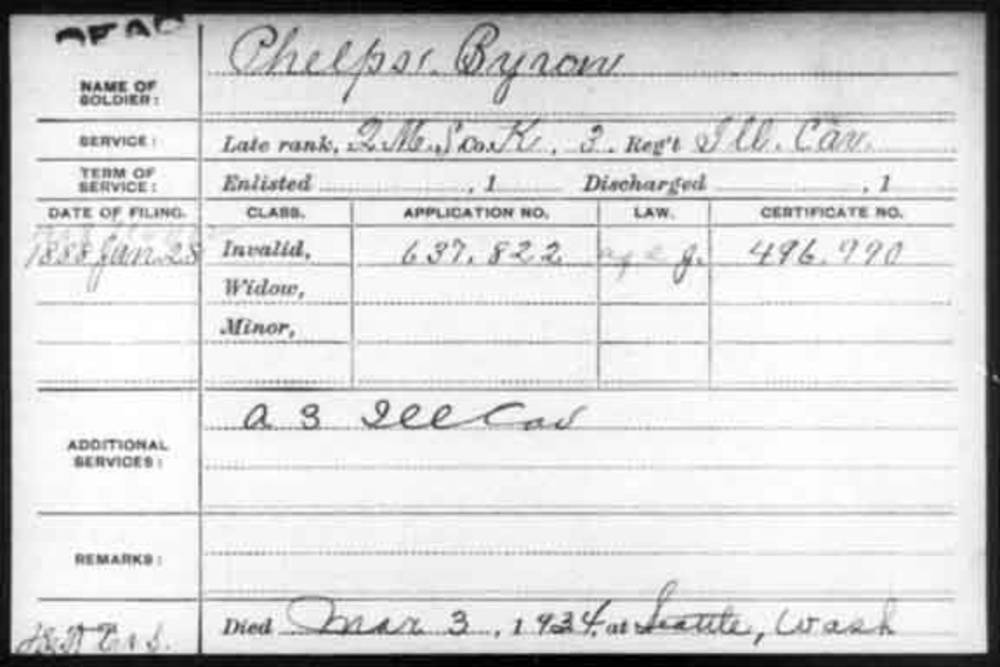 DEAD
Phelps, Byron
NAME OF SOLDIER:
SERVICE: Late rank, Q.M.S. Co. K, 3. Reg't Ill. Cav.
TERM OF SERVICE: Enlisted , 1 Discharged , 1
DATE OF FILING. CLASS. APPLICATION NO. LAW. CERTIFICATE NO.
1888 Jan. 28 Invalid, 637.822 g. 496.990
Widow,
Minor,
A 3 Ill Cav
ADDITIONAL SERVICES:
REMARKS:
Died Mar 3, 1934. at Seattle, Wash